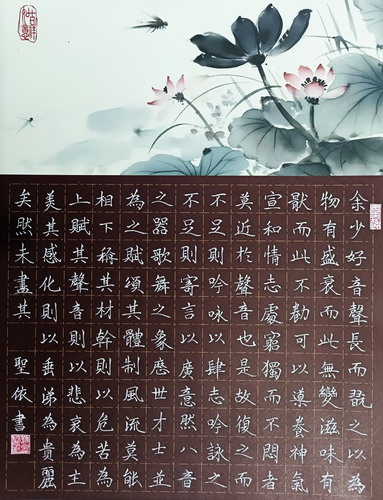 余少好音聲長而翫之以為
物有盛衰而此無變滋味有
猒而此不勌可以導養神氣
宣和情志處窮獨而不悶者
莫近於聲音也是故復之而
不足則吟詠以肆志吟詠之
不足則寄言以廣意然八音
之器歌舞之象歷世才士並
為之賦頌其體制風流莫能
相下稱其材幹則以危苦為
上賦其聲音則以悲哀為主
美其感化則以垂涕為貴麗
矣然未盡其 聖依書